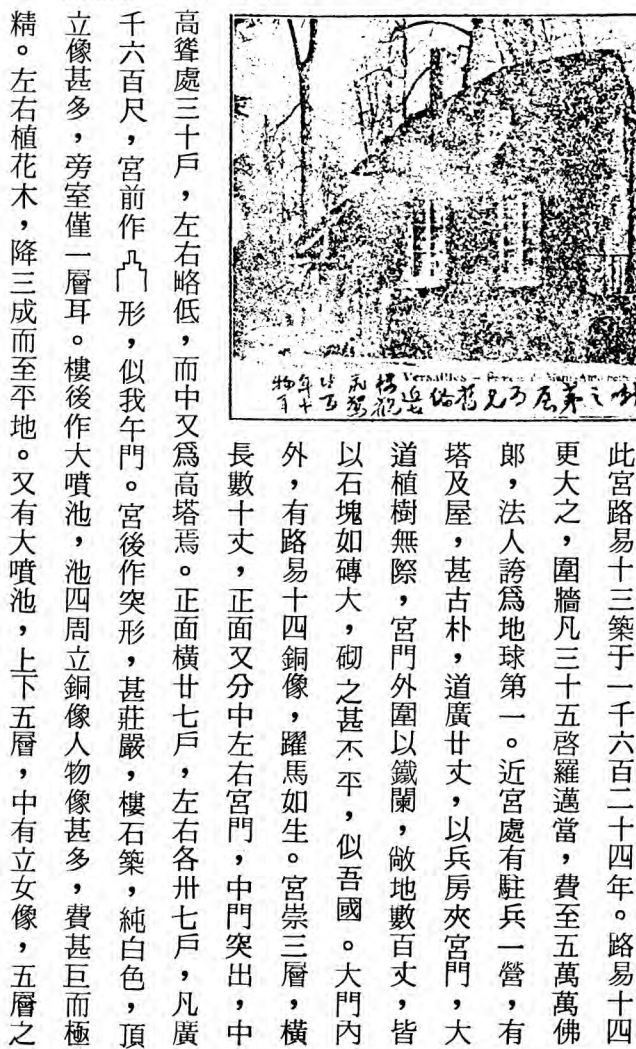 Versailles
此宮路易十三築于一千六百二十四年。路易十四
更大之，圍牆凡三十五啓羅邁當，費至五萬萬佛
郎，法人誇爲地球第一。近宮處有駐兵一營，有
塔及屋，甚古朴，道廣廿丈，以兵房夾宮門，大
道植樹無際，宮門外圍以鐵闌，敞地數百丈，皆
以石塊如磚大，砌之甚不平，似吾國。大門內
外，有路易十四銅像，躍馬如生。宮崇三層，橫
長數十丈，正面又分中左右宮門，中門突出，中
高聳處三十戶，左右略低，而中又爲高塔焉。正面橫廿七戶，左右各卅七戶，凡廣
千六百尺，宮前作形，似我午門。宮後作突形，甚莊嚴，樓石築，純白色，頂
立像甚多，旁室僅一層耳。樓後作大噴池，池四周立銅像人物像甚多，費甚巨而極
精。左右植花木，降三成而至平地。又有大噴池，上下五層，中有立女像，五層之